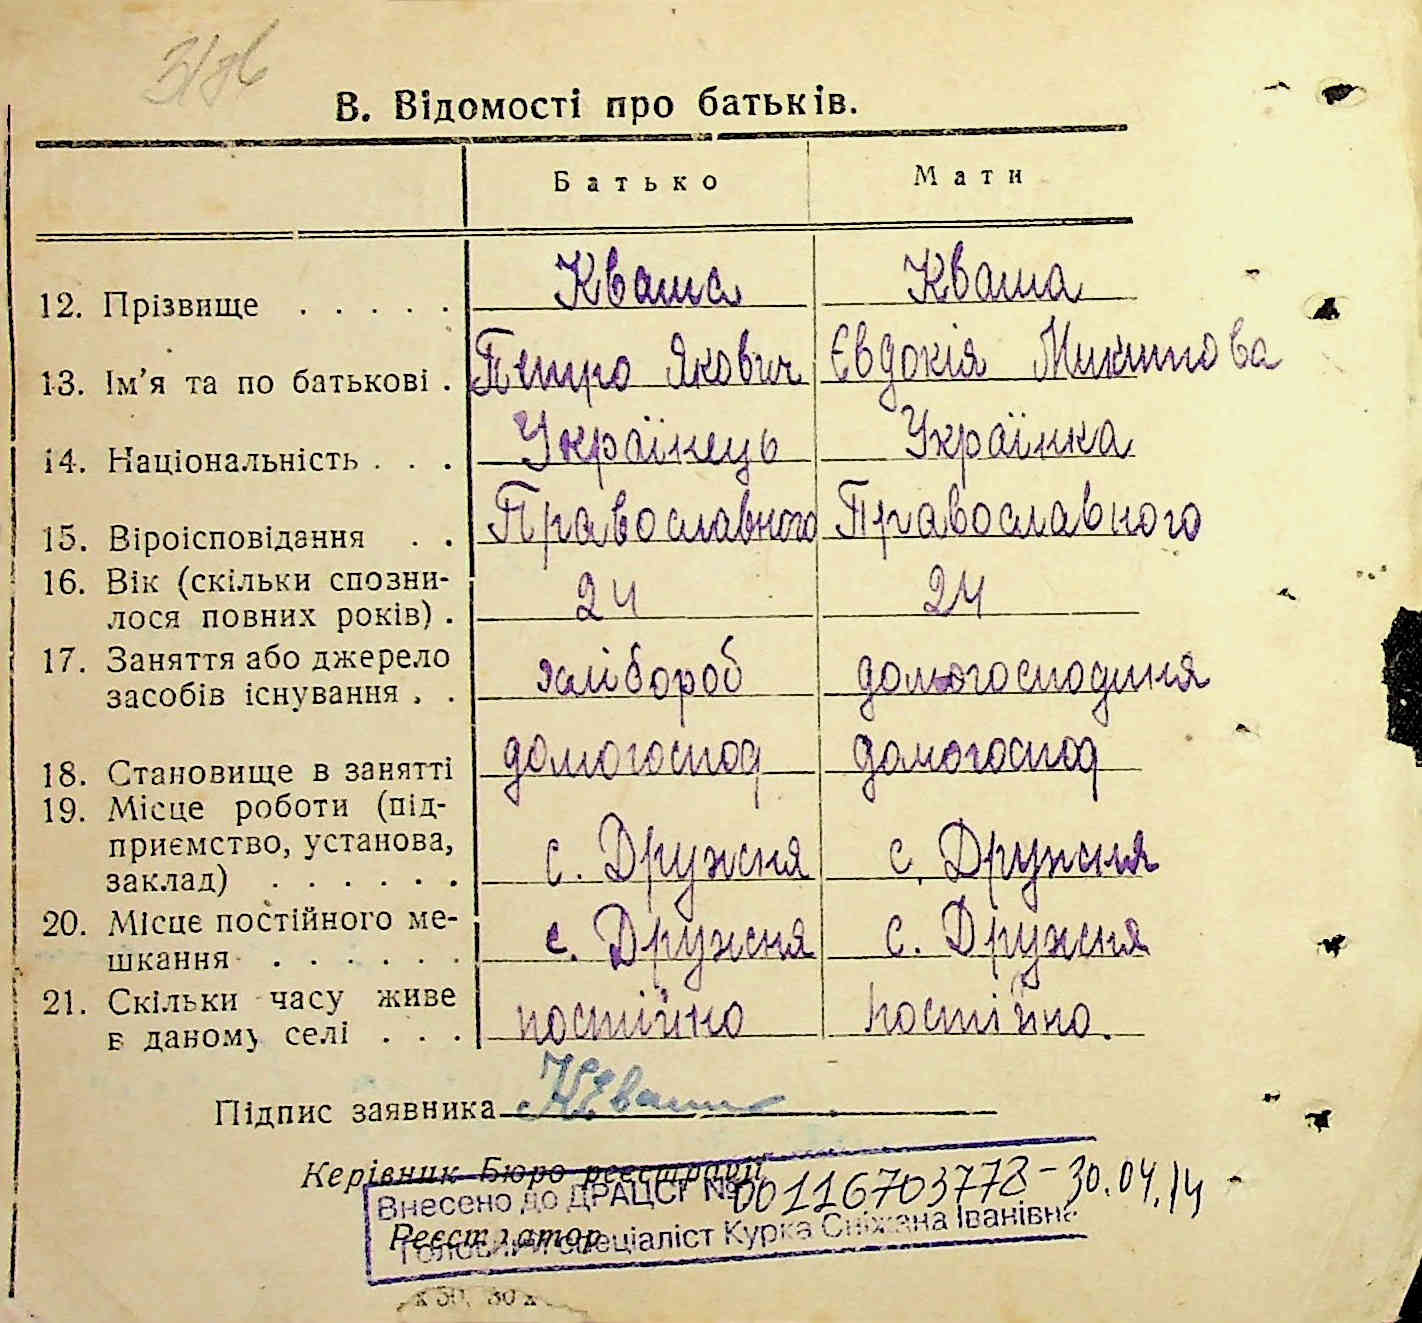 В. Відомості про батьків.
Батько Мати
12. Прізвище . . . . . Кваша Кваша
13. Ім’я та по батькові . Петро Якович Євдокія Микитова
14. Національність . . . Українець Українка
15. Віроісповідання . . Православного Православного
16. Вік (скільки спозни-
лося повних років) . 24 24
17. Заняття або джерело
засобів існування . . хлібороб домогосподиня
18. Становище в занятті домогоспод домогоспод
19. Місце роботи (під-
приємство, установа,
заклад) . . . . . . с. Дружня с. Дружня
20. Місце постійного ме-
шкання . . . . . . с. Дружня с. Дружня
21. Скільки часу живе
в даному селі . . . постійно постійно.
Підпис заявника
Керівник Бюро реєстрації
Внесено до ДРАЦСГ № 00116703778 - 30.04.14
Реєстратор
Головний спеціаліст Курка Сніжана Іванівна